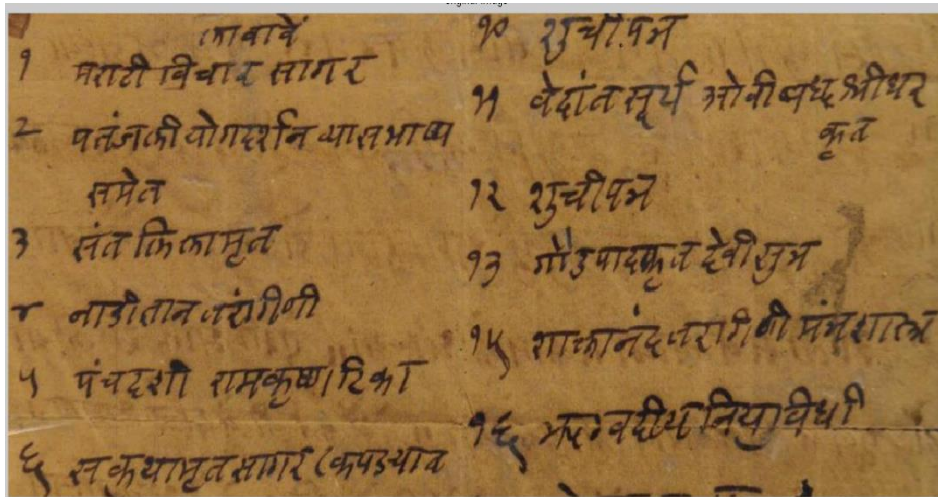 लावावे
१ मराठी विचार सागर
२ पतंजली योगदर्शन व्यासभाष्य
समेत
३ संत लिलामृत
४ नाडीज्ञान तरंगीणी
५ पंचदशी रामकृष्ण टिका
६ सकथामृतसागर (कपड्यात
१० शुचीपत्र
११ वेदांत सूर्य ओवीबध्द श्रीधर
कृत
१२ शुचीपत्र
१३ गौडपादकृत देवी सुत्र
१५ शाक्तानंदतरंगिणी मंत्रशास्त्र
१६ विधी